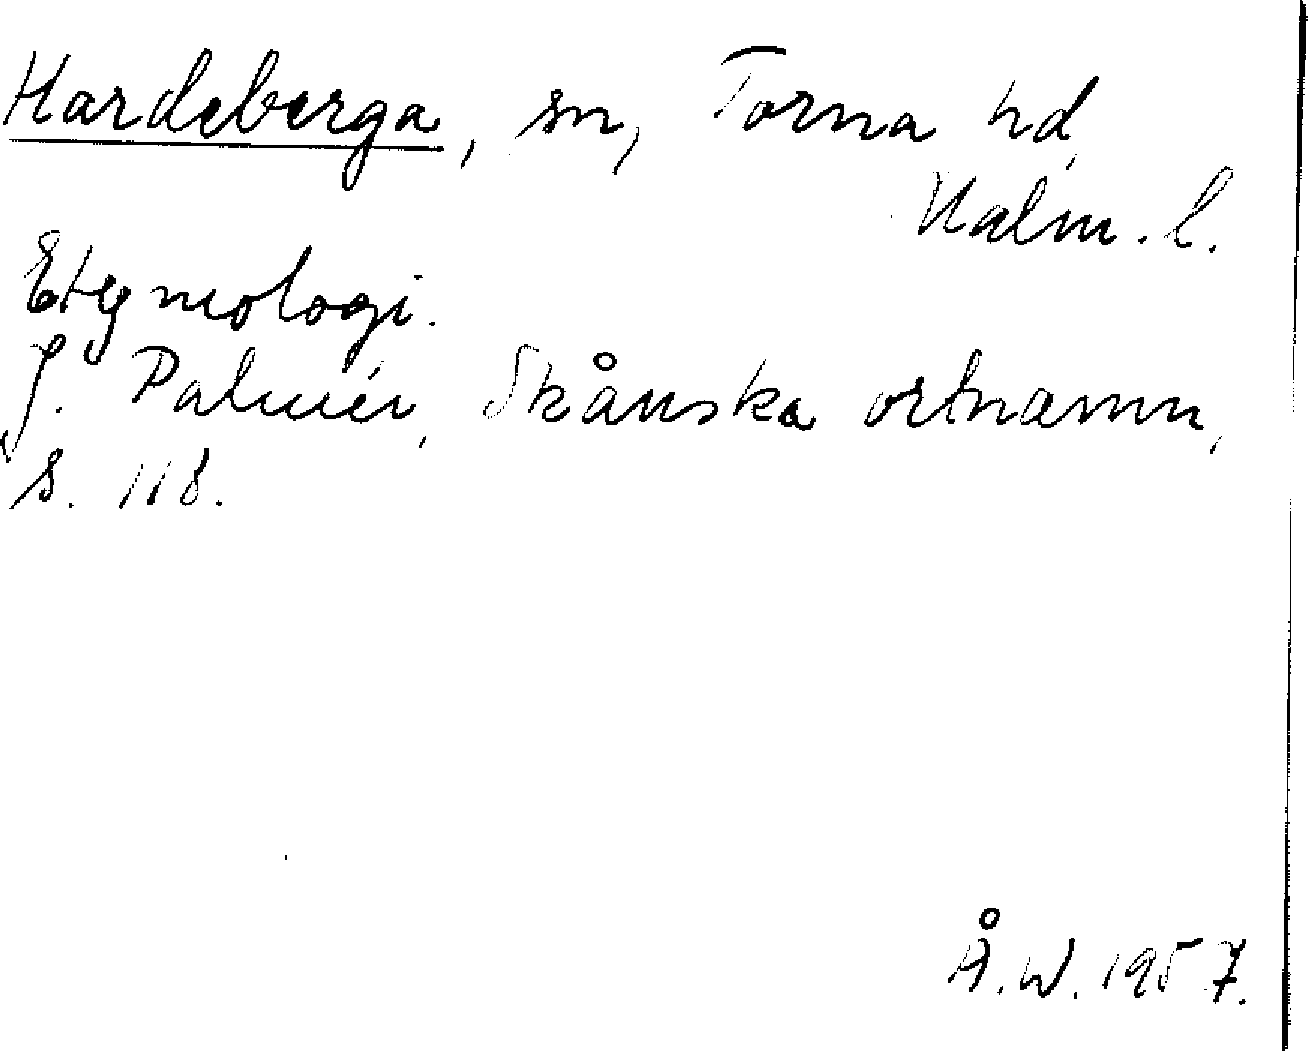 Hardeberga, sn, Torna hd,
Malm. l.
Etymologi.
J. Palmér, Skånska ortnamn,
s. 118.
Å.W. 1957.